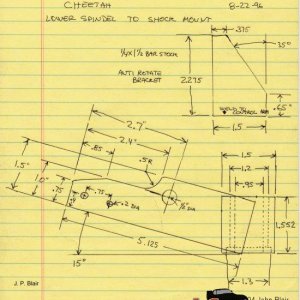 CHEETAH 8-22-96
LOWER SPINDEL TO SHOCK MOUNT
.375
25°
1/4 x 1 1/2 BAR STOCK
ANTI ROTATE
BRACKET
2.275
.65"
WELD TO
CONTROL ARM
1.5
2.7"
2.4"
.85
.5R
1.5"
1.0"
.75
.75
.2 DIA
1/2" DIA
5.125
15°
1.5
1.2
.95
1.552
1.3
J. P. Blair
04 John Blair